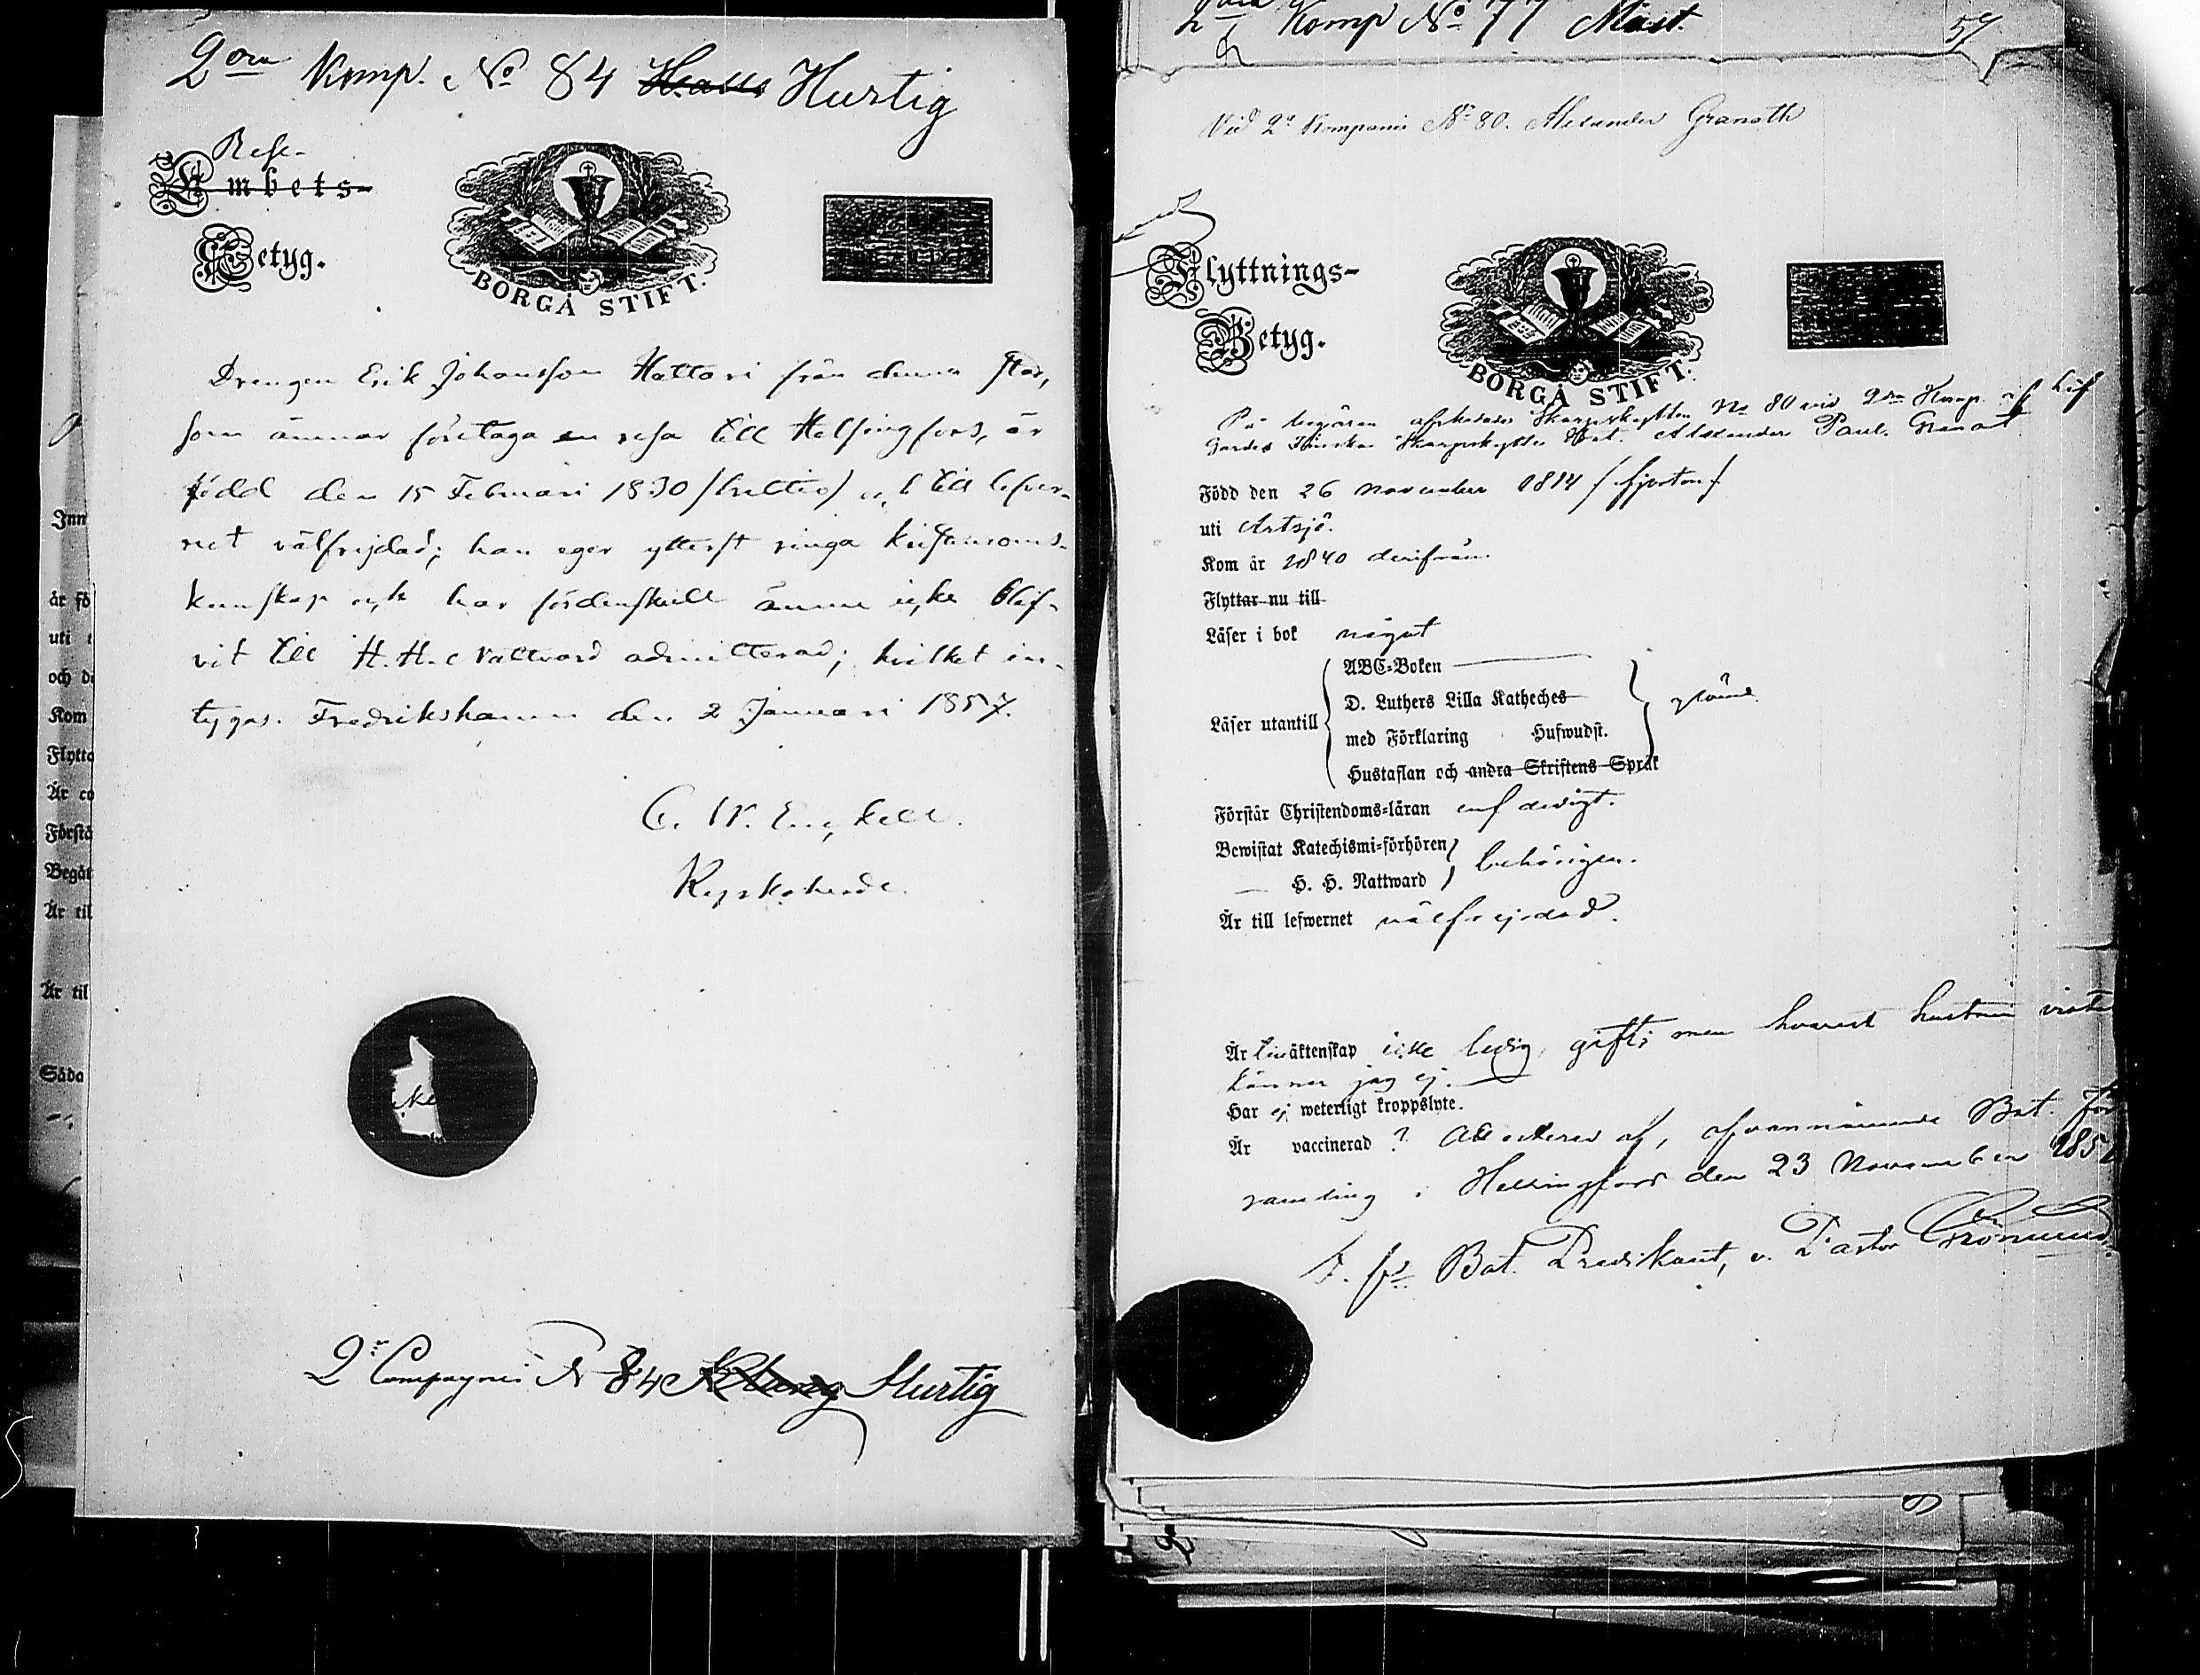 2dra Komp. No 84 Hurtig
Rese-
Embets-
Betyg.
BORGÅ STIFT.
Drengen Erik Johansson Hattari från denna stad,
som ämnar företaga en resa till Helsingfors, är
född den 15 Februari 1830 /trettio/ och till lefver-
net välfrejdad; han eger ytterst ringa kristendoms-
kunskap och har fördenskull ännu icke blif-
vit till H. H. Nattvard admitterad; hvilket in-
tygas. Fredrikshamn den 2 Januari 1857.
C. W. Engkell.
Kyrkoherde.
2:a Compagnei N 84 Hurtig
Inn
är fö
uti
och d
Kom
Flytta
Är
Förstå
Begåt
Är til
Är til
Såda
2dra Komp No 77 Mast.
57
Vid 2a Kompani No 80. Alexander Granoth
Flyttnings-
Betyg.
BORGÅ STIFT.
På begäran afskedade Skarpskytten No 80 vid 2dra Komp. af Lif
Gardes Finska Skarpskytte Bat. Alexander Paul. Granat
Född den 26 november 1814 / fjorton /
uti Artsjö.
Kom år 1840 derifrån.
Flyttar nu till
Läser i bok något
ABC-Boken
D. Luthers Lilla Katheches
Läser utantill
med Förklaring Hufwudst.
Hustaflan och andra Skriftens Språk
Förstår Christendoms-läran enfaldigt.
Bewistat Katechismi-förhören
H. H. Nattward
behörigen.
Är till lefwernet välfrejdad.
Är till äktenskap icke ledig, gift; men hvarest hustrun vistas
känner jag ej.
Har ej weterligt kroppslyte.
Är vaccinerad ? Attesterad af, ofvannämnde Bat. för
samling i Helsingfors den 23 November 185
T. f. Bat. Predikant, v. Pastor Grönlund